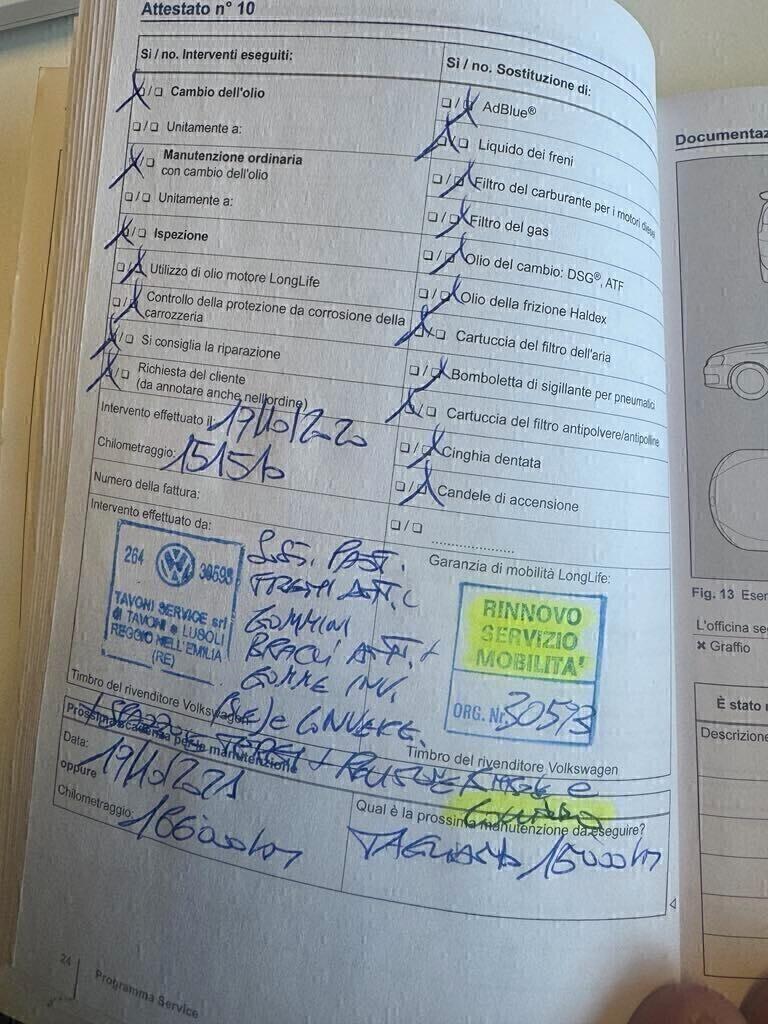 Attestato n° 10
Sì / no. Interventi eseguiti:
Cambio dell'olio
Unitamente a:
Manutenzione ordinaria
con cambio dell'olio
Unitamente a:
Ispezione
Utilizzo di olio motore LongLife
Controllo della protezione da corrosione della
carrozzeria
Si consiglia la riparazione
Richiesta del cliente
(da annotare anche nell'ordine)
Intervento effettuato il: 19/10/2020
Chilometraggio:
Numero della fattura:
Intervento effettuato da:
Sì / no. Sostituzione di:
AdBlue®
Liquido dei freni
Filtro del carburante per i motori diesel
Filtro del gas
Olio del cambio: DSG®, ATF
Olio della frizione Haldex
Cartuccia del filtro dell'aria
Bomboletta di sigillante per pneumatici
Cartuccia del filtro antipolvere/antipolline
Cinghia dentata
Candele di accensione
....................
Garanzia di mobilità LongLife:
264 30593
TAVONI SERVICE srl
di TAVONI e LUSOLI
REGGIO NELL'EMILIA
(RE)
SOS. PAST.
GOMMINI
GOMME INV.
RINNOVO
SERVIZIO
MOBILITA'
ORG. Nr. 30593
Timbro del rivenditore Volkswagen
Timbro del rivenditore Volkswagen
Prossima scadenza per la manutenzione
Data: 19/10/2021
oppure
Chilometraggio: 166000 km
Qual è la prossima manutenzione da eseguire?
TAGLIANDO 15000 km
24
Programma Service
Documentaz
Fig. 13 Esem
L'officina se
× Graffio
È stato
Descrizione